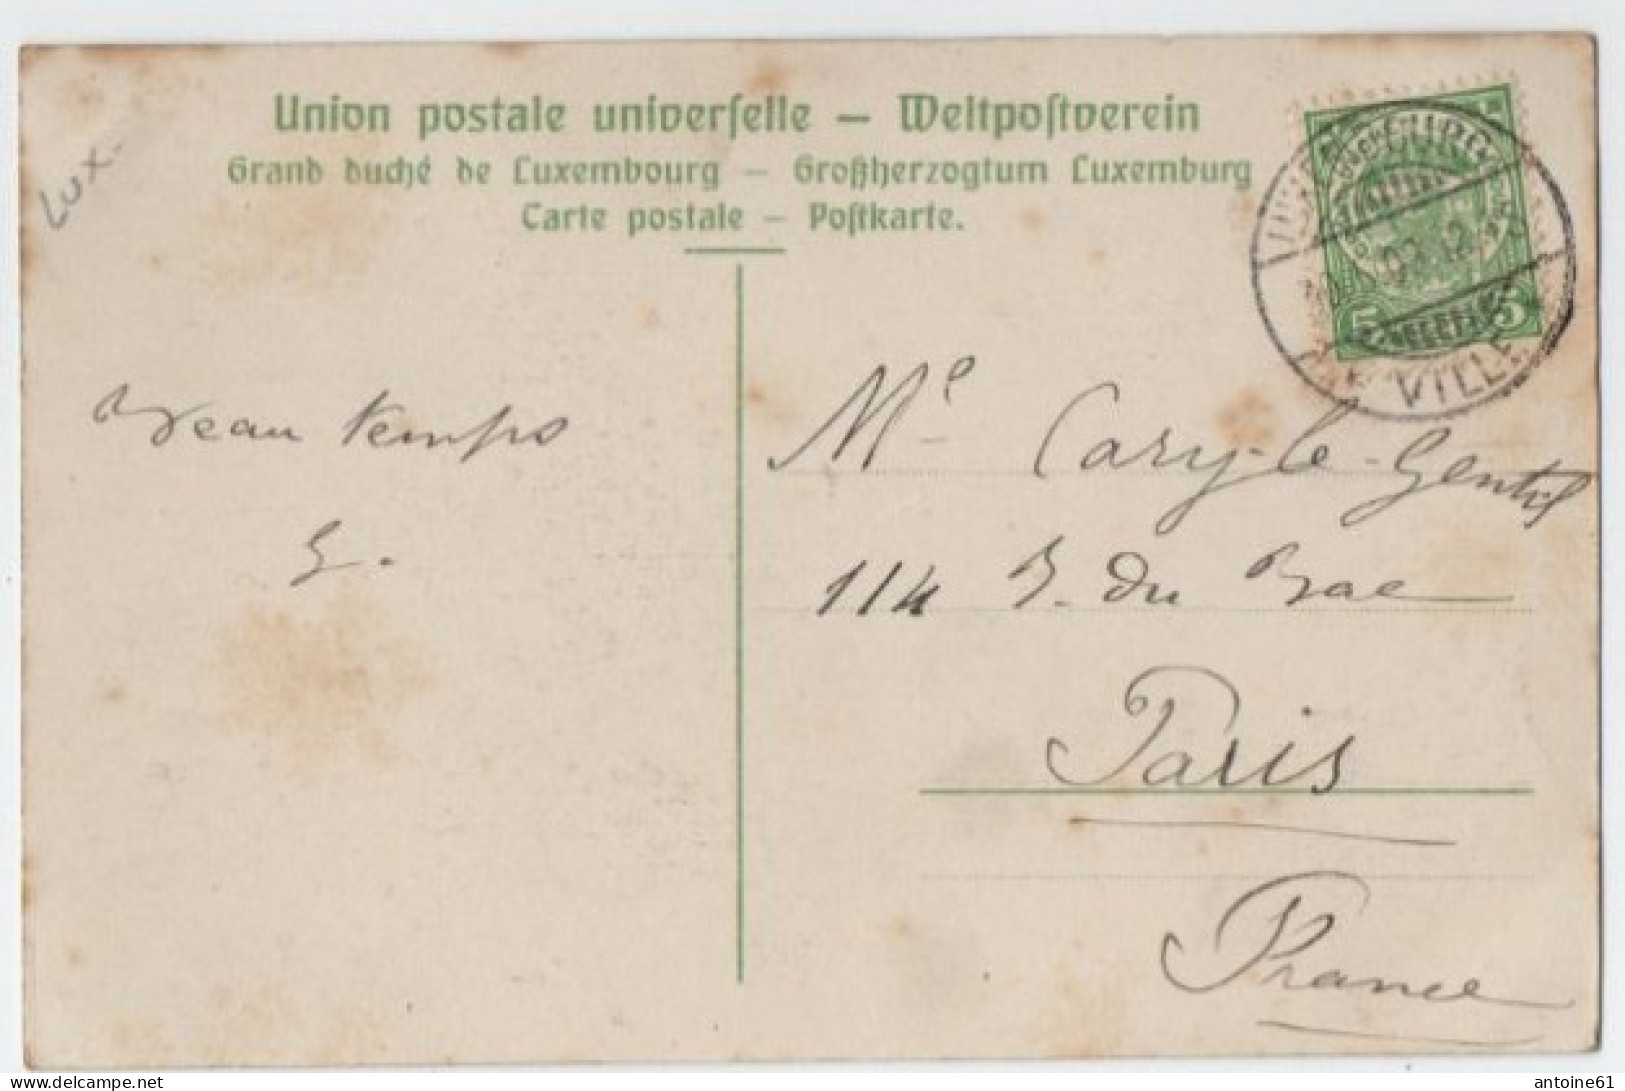 Union postale universelle — Weltpostverein
Grand duché de Luxembourg — Großherzogtum Luxemburg
Carte postale — Postkarte.
Lux.
5 5
VILLE
Beau temps
G.
Mle Cary-le-Gentil
114 B. du Bac
Paris
France
antoine61